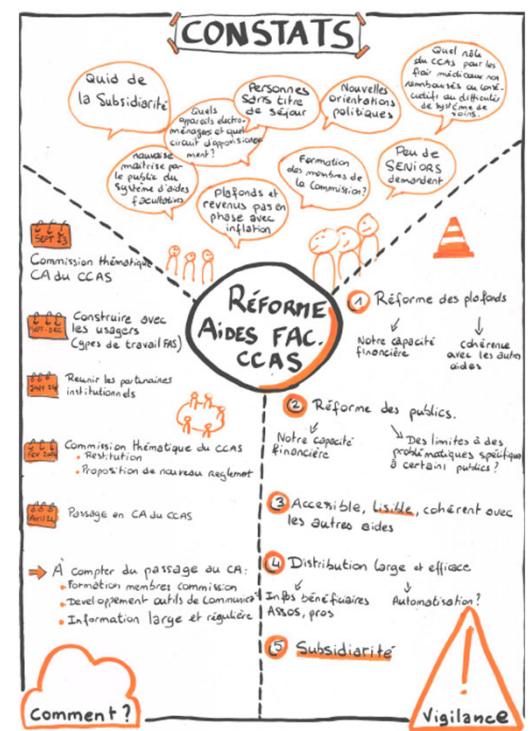 CONSTATS
Quid de
la Subsidiarité
Quels
appareils électro-
ménagers et quel
circuit d'approvisionne
ment?
Personnes
Sans titre
de séjour
Nouvelles
orientations
politiques
Quel rôle
du CCAS pour les
frais médicaux non
remboursés ou consé-
cutifs au difficultés
de système de
soins.
mauvaise
maîtrise par
le public du
système d'aides
facultatives
Plafonds et
revenus pas en
phase avec
inflation
Formation
des membres de
la Commission?
Peu de
SENIORS
demandent
RÉFORME
AIDES FAC.
CCAS
SEPT 23
Commission thématique
CA du CCAS
SEPT-DEC
Construire avec
les usagers
(types de travail FAS)
Réunir les partenaires
institutionnels
Commission thématique du CCAS
• Restitution
• Proposition de nouveau Reglement
Avril 24
Passage en CA du CCAS
À compter du passage au CA:
• Formation membres commission
• Developpement outils de Communica°
• Information large et régulière
Comment?
1 Réforme des plafonds
Notre capacité
financière
cohérence
avec les autres
aides
2 Réforme des publics.
Notre capacité
financière
Des limites à des
problématiques spécifiques
à certains publics?
3 Accessible, Lisible, cohérent avec
les autres aides
4 Distribution large et efficace
Infos bénéficiaires
Assos, pros
Automatisation?
5 Subsidiarité
!
Vigilance